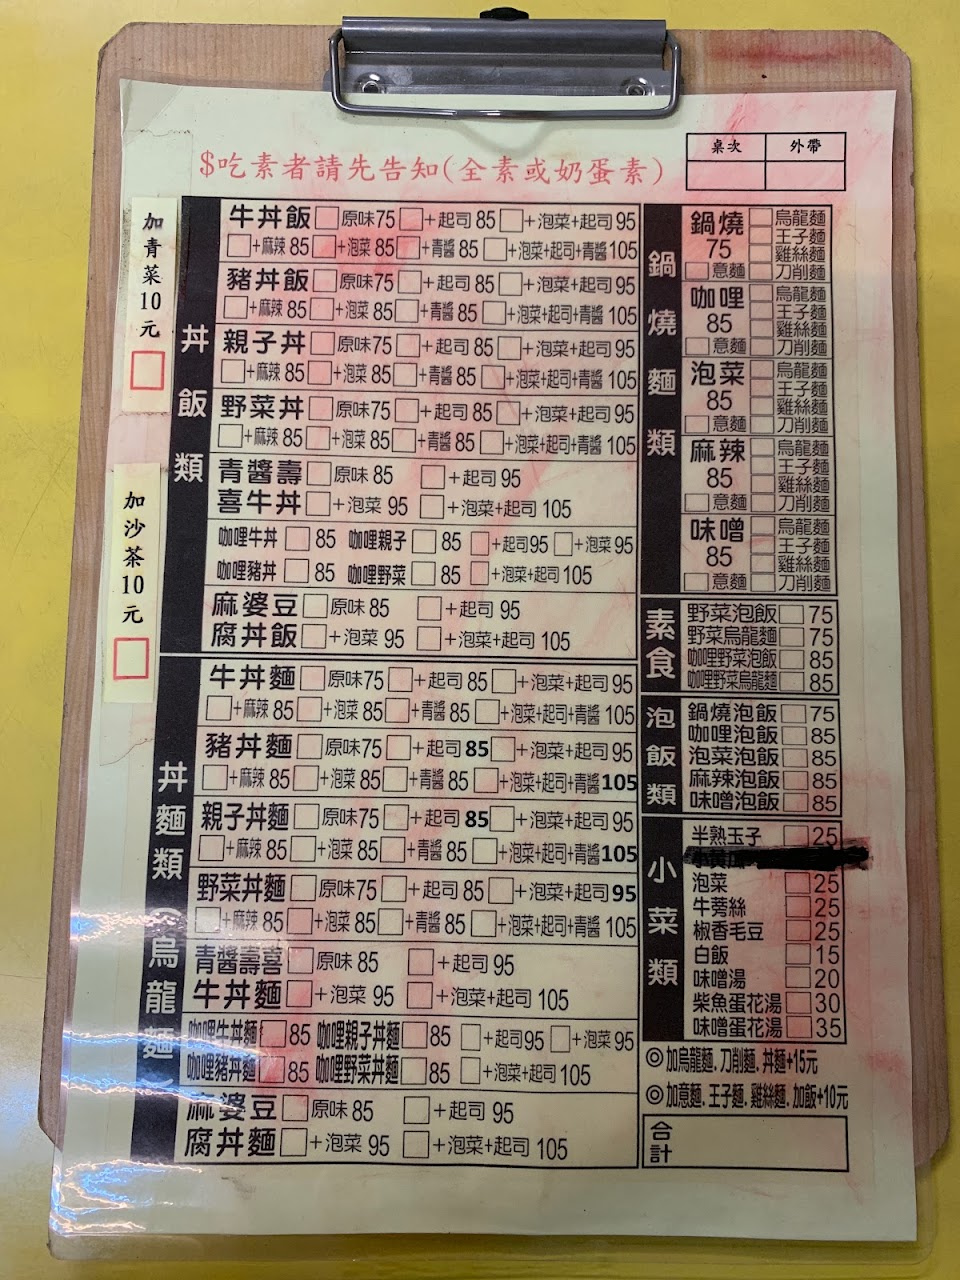 $吃素者請先告知(全素或奶蛋素)
桌次 外帶
加青菜10元
加沙茶10元
丼飯類
牛丼飯 原味75 +起司 85 +泡菜+起司 95
+麻辣 85 +泡菜 85 +青醬 85 +泡菜+起司+青醬 105
豬丼飯 原味75 +起司 85 +泡菜+起司 95
+麻辣 85 +泡菜 85 +青醬 85 +泡菜+起司+青醬 105
親子丼 原味75 +起司 85 +泡菜+起司 95
+麻辣 85 +泡菜 85 +青醬 85 +泡菜+起司+青醬 105
野菜丼 原味75 +起司 85 +泡菜+起司 95
+麻辣 85 +泡菜 85 +青醬 85 +泡菜+起司+青醬 105
青醬壽 原味 85 +起司 95
喜牛丼 +泡菜 95 +泡菜+起司 105
咖哩牛丼 85 咖哩親子 85 +起司95 +泡菜 95
咖哩豬丼 85 咖哩野菜 85 +泡菜+起司 105
麻婆豆 原味 85 +起司 95
腐丼飯 +泡菜 95 +泡菜+起司 105
丼麵類(烏龍麵)
牛丼麵 原味75 +起司 85 +泡菜+起司 95
+麻辣 85 +泡菜 85 +青醬 85 +泡菜+起司+青醬 105
豬丼麵 原味75 +起司 85 +泡菜+起司 95
+麻辣 85 +泡菜 85 +青醬 85 +泡菜+起司+青醬105
親子丼麵 原味75 +起司 85 +泡菜+起司 95
+麻辣 85 +泡菜 85 +青醬 85 +泡菜+起司+青醬105
野菜丼麵 原味75 +起司 85 +泡菜+起司95
+麻辣 85 +泡菜 85 +青醬 85 +泡菜+起司+青醬 105
青醬壽喜 原味 85 +起司 95
牛丼麵 +泡菜 95 +泡菜+起司 105
咖哩牛丼麵 85 咖哩親子丼麵 85 +起司95 +泡菜 95
咖哩豬丼麵 85 咖哩野菜丼麵 85 +泡菜+起司 105
麻婆豆 原味 85 +起司 95
腐丼麵 +泡菜 95 +泡菜+起司 105
鍋燒麵類
鍋燒 烏龍麵
75 王子麵
雞絲麵
意麵 刀削麵
咖哩 烏龍麵
85 王子麵
雞絲麵
意麵 刀削麵
泡菜 烏龍麵
85 王子麵
雞絲麵
意麵 刀削麵
麻辣 烏龍麵
85 王子麵
雞絲麵
意麵 刀削麵
味噌 烏龍麵
85 王子麵
雞絲麵
意麵 刀削麵
素食
野菜泡飯 75
野菜烏龍麵 75
咖哩野菜泡飯 85
咖哩野菜烏龍麵 85
泡飯類
鍋燒泡飯 75
咖哩泡飯 85
泡菜泡飯 85
麻辣泡飯 85
味噌泡飯 85
小菜類
半熟玉子 25
泡菜 25
牛蒡絲 25
椒香毛豆 25
白飯 15
味噌湯 20
柴魚蛋花湯 30
味噌蛋花湯 35
◎加烏龍麵.刀削麵.丼麵+15元
◎加意麵.王子麵.雞絲麵.加飯+10元
合計